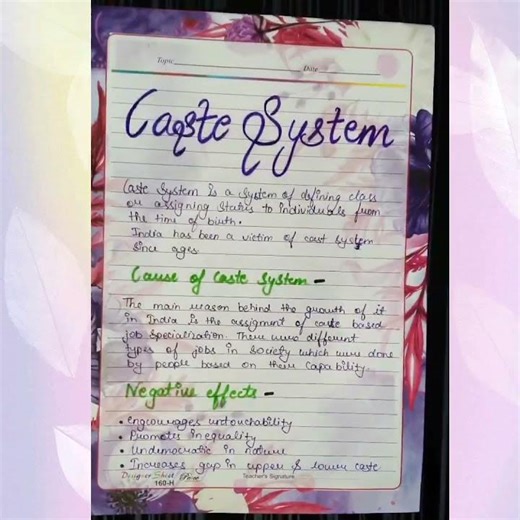 Topic
Date
Caste System
Caste System is a system of defining class
or assigning status to individuals from
the time of birth.
India has been a victim of cast system
since ages.
Cause of Caste System -
The main reason behind the growth of it
in India is the assigment of caste based
job specialization. There were different
types of jobs in society which were done
by people based on their capability.
Negative effects -
• encourages untouchability
• Promotes inequality
• Undemocratic in nature
• Increases gap in upper & lower caste
Designer Sheet
160-H
Teacher's Signature